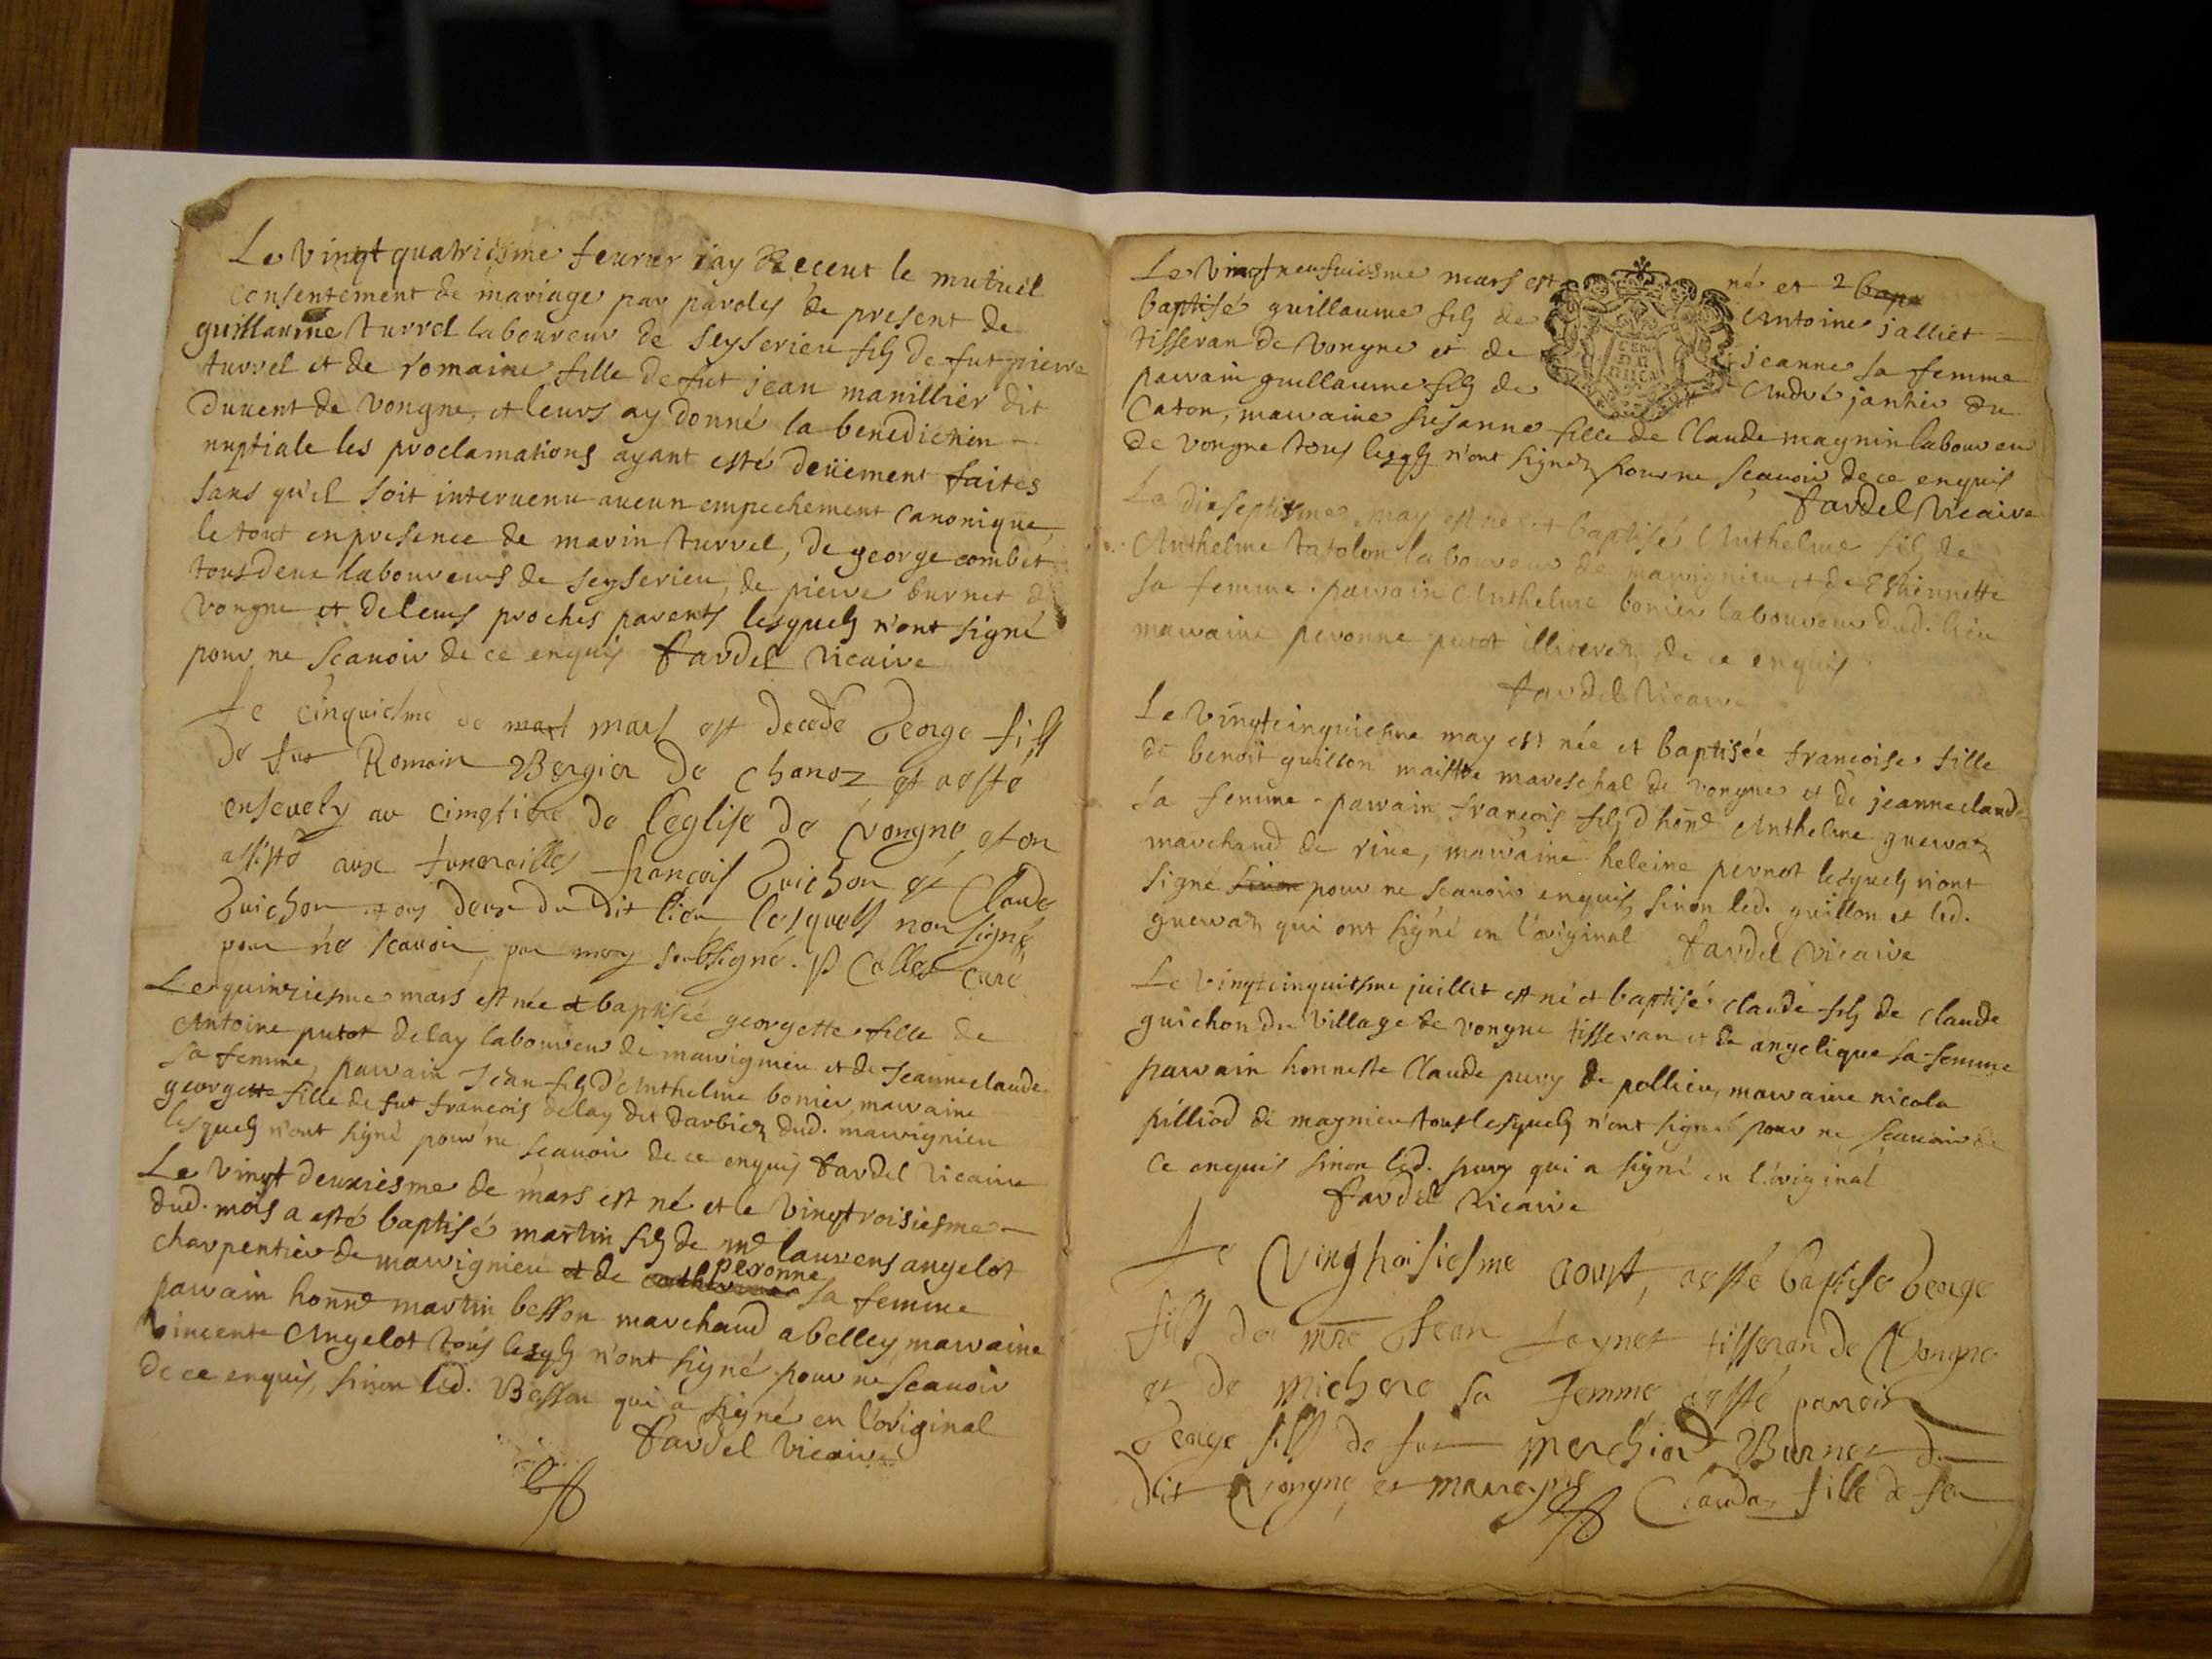 Le vingt quatriesme feurier jay Receut le mutuel
consentement de mariage par paroles de present de
guillaume turrel laboureur de seyserieu filz de fut pierre
turrel et de romaine fille de fut jean manillier dit
duuent de vongne, et leurs ay donné la benediction
nuptiale les proclamations ayant esté deüement faites
sans qu'il soit interuenu aucun empechement canonique,
le tout en presence de marin turrel, de george combet
tous deux laboureurs de seyserieu, de pierre burnet de
vongne et de leurs proches parents lesquelz n'ont signé
pour ne scauoir de ce enquis fardel vicaire
Le cinquiesme de mars mars est decede George filz
de fut Romain Bergier de Chanoz et a esté
enseuely au cimetiere de l'eglise de vongne, et on
assisté aux funerailles françois Guichon et Claude
Guichon tous deux du dit lieu lesquels non signé
pour ne scauoir, par moy soubsigné. P Collet curé
Le quinziesme mars est née et baptisée georgette fille de
Antoine putot delay laboureur de mauignieu et de Jeanneclaude
sa femme, parrain Jean filz d'Anthelme bonier, marraine
georgette fille de fut francois delay dit darbier dud. mauignieu
lesquelz n'ont signé pour ne scauoir de ce enquis fardel vicaire
Le vingt deuxiesme de mars est né et le vingtroisiesme
dud. mois a esté baptisé martin filz de me laurens angelot
charpentier de mauignieu et de peronne sa femme
parrain honne martin besson marchand a belley marraine
vincente Angelot tous lesqlz n'ont signé pour ne scauoir
de ce enquis, sinon led. Besson qui a signé en l'original
fardel vicaire
Le vingtneufuiesme mars est né et bap
baptisé guillaume filz de Antoine jalliet
tisseran de vongne et de jeanne sa femme
parrain guillaume filz de André janthier du
Caton, marraine susanne fille de Claude magnin laboureur
de vongne tous lesqlz n'ont signez pour ne scauoir de ce enquis
fardel vicaire
Le dixseptisme may est né et baptisé Anthelme filz de
Anthelme tatolon laboureur de mauignieu et de Estiennette
sa femme. parrain Anthelme bonier laboureur dud. lieu
marraine peronne putot illiterez de ce enquis
fardel vicaire
Le vingtcinquiesme may est née et baptisée francoise fille
de benoit guillon maistre mareschal de vongne et de jeanneclaude
sa femme. parrain francois filz d'honē Anthelme guerraz
marchand de rive, marraine heleine pernot lesquelz n'ont
signé sinon pour ne scauoir enquis, sinon led. guillon et led.
guerraz qui ont signé en l'original fardel vicaire
Le vingtcinquiesme juillet est né et baptisé claude filz de claude
guichon du village de vongne tisseran et de angelique sa femme
parrain honneste Claude pury de pollieu, marraine nicola
pilliod de magnieu tous lesquelz n'ont signé pour ne scauoir de
ce enquis sinon led. pury qui a signé en l'original
fardel vicaire
Le vingtroisiesme aoust, a esté baptisé George
filz de mre Jean Jaynet tisseran de vongne
et de michere sa femme, a esté parrein
George filz de fut merchior Burnet du
dit vongne, et marreyne Clauda fille de feu